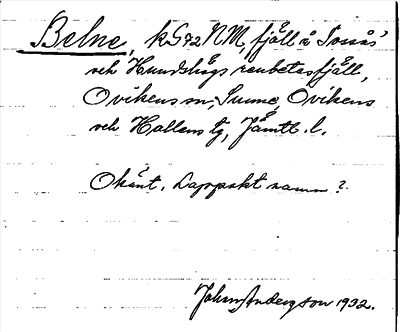 Belne, k S 72 NM, fjäll å Tossås'
och Hundshögs renbetesfjäll,
Ovikens sn, Sunne, Ovikens
och Hallens tg, Jämtl. l.
Okänt. Lappskt namn?
Johan Anderson 1932.